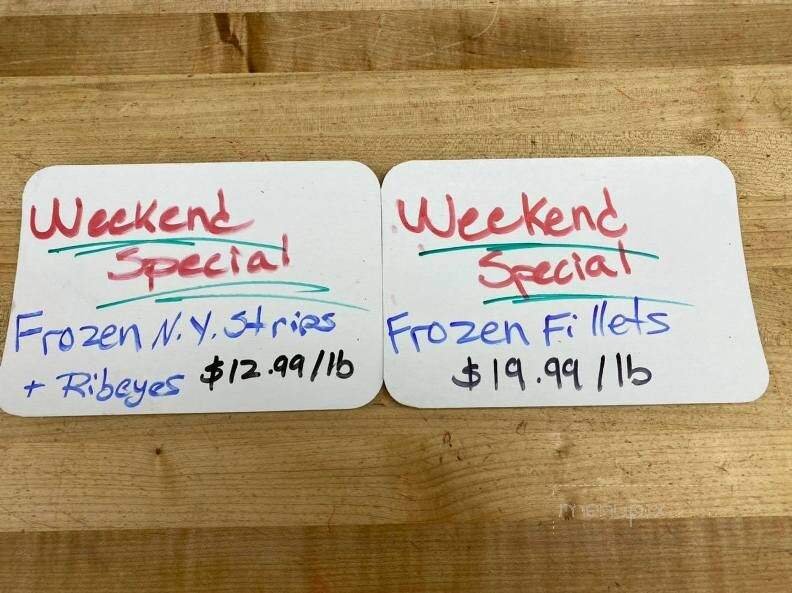 Weekend
Special
Frozen N.Y. Strips
+ Ribeyes $12.99/lb
Weekend
Special
Frozen Fillets
$19.99/lb